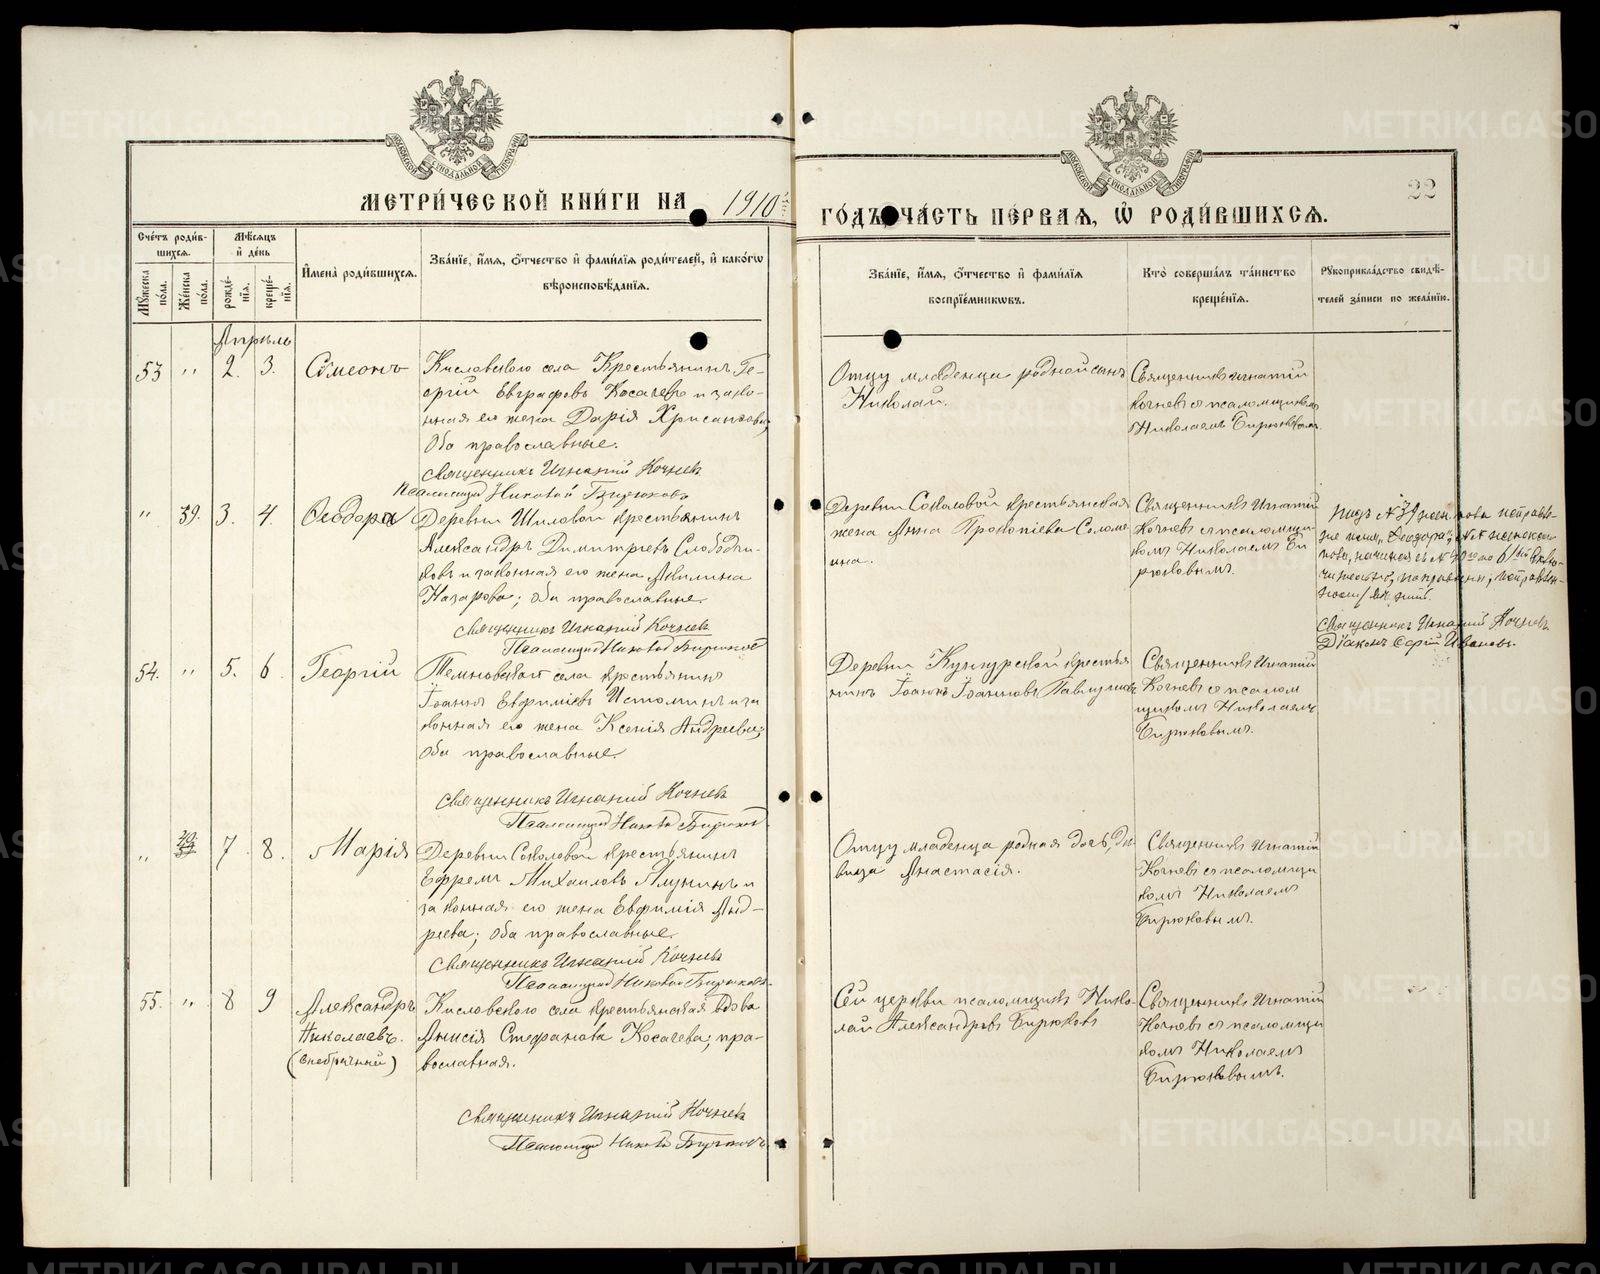 МЕТРИ́ЧЕСКОЙ КНИ́ГИ НА 1910
ГО́ДЪ, ЧА́СТЬ ПЕ́РВАѦ, Ѽ РОДИ́ВШИХСѦ.
22
МОСКОВСКОЙ СѴНОДАЛЬНОЙ ТИПОГРАФІИ
МОСКОВСКОЙ СѴНОДАЛЬНОЙ ТИПОГРАФІИ
Сче́тъ роди́вшихсѧ.
Мꙋжеска по́ла.
Же́нска по́ла.
Мѣ́сѧцъ и҆ де́нь
рожде́нїѧ.
креще́нїѧ.
И҆мена̀ роди́вшихсѧ.
Зва́нїе, и҆́мѧ, ѻ҆́тчество и҆ фами́лїѧ роди́телей, и҆ како́гѡ
вѣроисповѣ́данїѧ.
Зва́нїе, и҆́мѧ, ѻ҆́тчество и҆ фами́лїѧ
воспрїе́мникѡвъ.
Кто̀ соверша́лъ та́инство
креще́нїѧ.
Рꙋкоприкла́дство свидѣ́-
телей за́писи по жела́нїю.
Апрѣль
53 " 2. 3. Сѵмеонъ
Кисловскаго села Крестьянинъ Ге-
оргій Евграфовъ Косачевъ и зако-
нная его жена Дарія Хрисанѳова;
Оба православные.
Священникъ Игнатій Кочневъ
Псаломщикъ Николай Бирюковъ
Отцу младенца родной сынъ
Николай.
Священникъ Игнатій
Кочневъ съ псаломщикомъ
Николаемъ Бирюковымъ.
" 39. 3. 4. Ѳеодора
Деревни Шиловой крестьянинъ
Александръ Димитріевъ Слободчи-
ковъ и законная его жена Акилина
Назарова; оба православные.
Священникъ Игнатій Кочневъ
Псаломщикъ Николай Бирюковъ
Деревни Соколовой крестьянская
жена Анна Прокопіева Соломе-
ина.
Священникъ Игнатій
Кочневъ съ псаломщи-
комъ Николаемъ Би-
рюковымъ.
Подъ № 39 женскаго исправле-
ніе имя „Ѳеодора", №№ женска
пола, начиная съ № по вклю-
чительно,
Священникъ Игнатій Кочневъ
Діаконъ Сергій Ивановъ.
54. " 5. 6. Георгій
Темновскаго села крестьянинъ
Іоаннъ Евфиміевъ Истоминъ и за-
конная его жена Ксенія Андреева;
Оба православные.
Священникъ Игнатій Кочневъ
Псаломщикъ Николай Бирюковъ
Деревни Кунгурской крестья-
нинъ Іоаннъ Іоанновъ Павлушинъ
Священникъ Игнатій
Кочневъ съ псалом
щикомъ Николаемъ
Бирюковымъ.
" 40 7. 8. Марія
Деревни Соколовой крестьянинъ
Ефремъ Михаиловъ и
законная его жена Евфимія Анд-
реева; оба православные.
Священникъ Игнатій Кочневъ
Псаломщикъ Николай Бирюковъ
Отцу младенца родная дочь, дѣ-
вица Анастасія.
Священникъ Игнатій
Кочневъ съ псаломщи
комъ Николаемъ
Бирюковымъ.
55. " 8 9 Александръ
Николаевъ.
(внебрачный)
Кисловскаго села крестьянская вдова
Анисія Стефанова Косачева; пра-
вославная.
Священникъ Игнатій Кочневъ
Псаломщикъ Николай Бирюковъ
Сей церкви псаломщикъ Нико-
лай Александровъ Бирюковъ
Священникъ Игнатій
Кочневъ съ псаломщи
комъ Николаемъ
Бирюковымъ.
METRIKI.GASO-URAL.RU